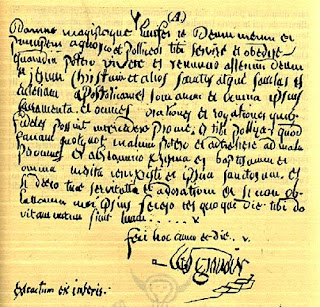 Domine magisterque Lucifer te Deum meum et
principem agnosco et polliceor tibi servire et obedire
quamdiu potero vivere et renuncio alterum deum
et jesum Christum et alios sanctos atque sanctas et
ecclesiam apostolicam romanam et omnia ipsius
sacramenta et omnes orationes et rogationes quibus
fideles possint intercedere pro me et tibi polliceor quod
faciam quotquot malum potero et attrahere ad mala
per omnes et abrenuncio et baptismum et
omnia merita et ipsius sanctorum et
si deero tuae servituti et adorationi et si non ob-
lationem mei ipsius fecero ter quoque die tibi do
vitam meam sicut tuam
feci hoc anno et die
extractum ex inferis